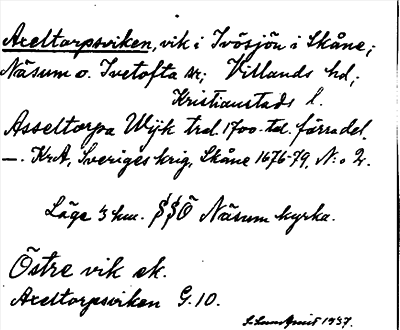 Axeltorpsviken, vik i Ivösjön i Skåne;
Näsum o. Ivetofta snr; Villands hd;
Kristianstads l.
Asseltorpa Wijk trol. 1700-tal. förra del.
—. KrA, Sveriges krig, Skåne 1676-79, N:o 2.
Läge 3 km. SSÖ Näsum kyrka.
Östre vik ek.
Axeltorpsviken G.10.
1937.